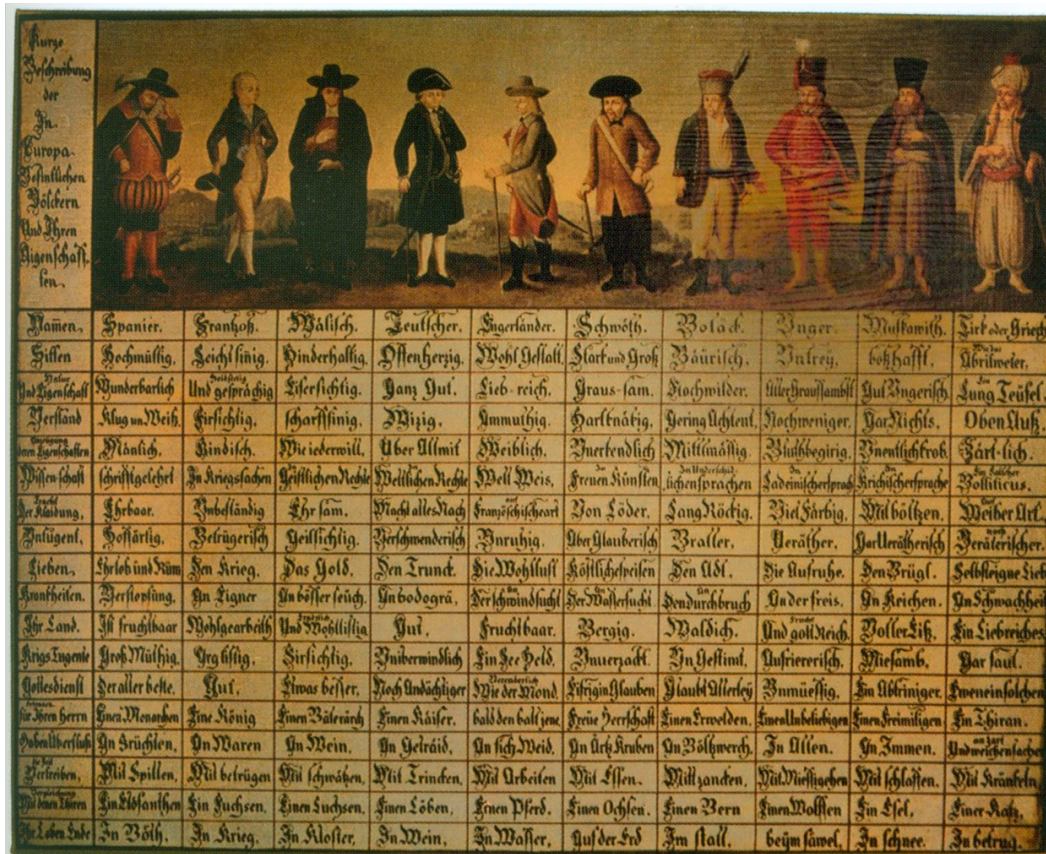 Kurze
Beschreibung
der
In
Europa-
Befintlichen
Völckern
Und Ihren
Aigenschaff-
ten.
Namen. Spanier. Frantzoß. Wälisch. Teutscher. Engerländer. Schwöth. Boläck. Unger. Muskawith. Tirk oder Griech
Sitten Hochmüttig. Leicht sinig. Hinderhaltig. Offenherzig. Wohl Gestalt. Starck und Groß Bäurisch. Untrey. boßhafft. Abrilweter.
Natur Und Eigenschaft Wunderbarlich Und gesprächig Eifersichtig. Ganz Gut. Lieb-reich. Graus-sam. Nochwilder. Aller Graussambst. Gut Ungerisch. Lung Teüfel.
Verstand Klug un Weiß. Firsichtig. scharffsinig. Wizig. Ammuthig. Hartknätig. Gering Achtent. Nochweniger. Gar Nichts. Oben Auß.
deren Eigenschaften Mänlich. Kindisch. Wie iederwill. Über Allmit Weiblich. Unerkendlich Mittlmäsig. Bluthbegirig. Unentlichkrob. Zärt-lich.
Wissenschaft schriftgelehrt In Kriegssachen Geistlichen Rechte Weltlichen Rechte Welt Weis. Freuen Künsten lichensprachen Ladeinischersprach Krichischersprache Bolliticus.
Der Klaidung. Ehrbaar. Unbeständig Ehrsam. Macht alles Nach Französchischeart Von Löder. Lang Röckig. Viel Färbig. Mit böltzen. Weiber Art.
Untugent. Hoffärtig. Betrügerisch Geilsichtig. Verschwenderisch Unruhig. Über Glauberisch Braller. Veräther. Gar Verätherisch Veräterischer.
Lieben. Ehrlob und Rüm Den Krieg. Das Gold. Den Trunck. Die Wohllust Köstlichespeisen Den Adl. Die Aufruhe. Den Brügl. Selbsteigne Lieb
Kronkheiten. Verstopfung. An Eigner An bösser seüch. An bodogrä. Der schwindsucht Der Wassersucht Den durchbruch An der freis. An Keichen. An Schwachheit
Ihr Land. Ist fruchtbaar Wohlgearbeith Und Wohllistig Gut. Fruchtbaar. Bergig. Waldich. Und golt Reich. Voller Eiß. Ein Liebreiches
Krigs Tugente Groß Müthig. Arg listig. Firsichtig. Unüberwindlich Ein See Held. Unverzackt. Un Gestimt. Aufriererisch. Miesamb. Gar faul.
Gottesdienst Der aller beste. Gut. Etwas beßer. Noch Andächtiger Wie der Mond. Eifrig in Glauben Glaubt Allerley Unmüessig. Ein Abtriniger. Eweneinsolchen
für Ihren herrn Einen Monarchen Eine König Einen Bäterärch Einen Kaiser. bald den bald jene. Freüe Herrschaft Einen Erwelden. Einen Unbeliebigen Einen Freimiligen Ein Thiran.
Haben Überfluß An Früchten. An Waren An Wein. An Geträid. An fich Weid. An Ärtz Kruben An Böltzwerch. In Allen. An Immen. Und weichen sachen
Vertreiben. Mit Spillen. Mit betrügen Mit schwätzen. Mit Trincken. Mit Arbeiten Mit Essen. Mit zancken. Mit Miessigehen Mit schlaffen. Mit Kränkeln
Vergleichung Mit denen Thiren Ein Elofanthen Ein Fuchsen. Einen Luchsen. Einen Löben. Einen Pferd. Einen Ochsen. Einen Bern Einen Wolffen Ein Esel. Einer Katz.
Ihr Leben Ende In Böth. In Krieg. In Kloster. In Wein. In Wasser. Auf der Erd Im stall. beÿm säwel. In schnee. In betrug.